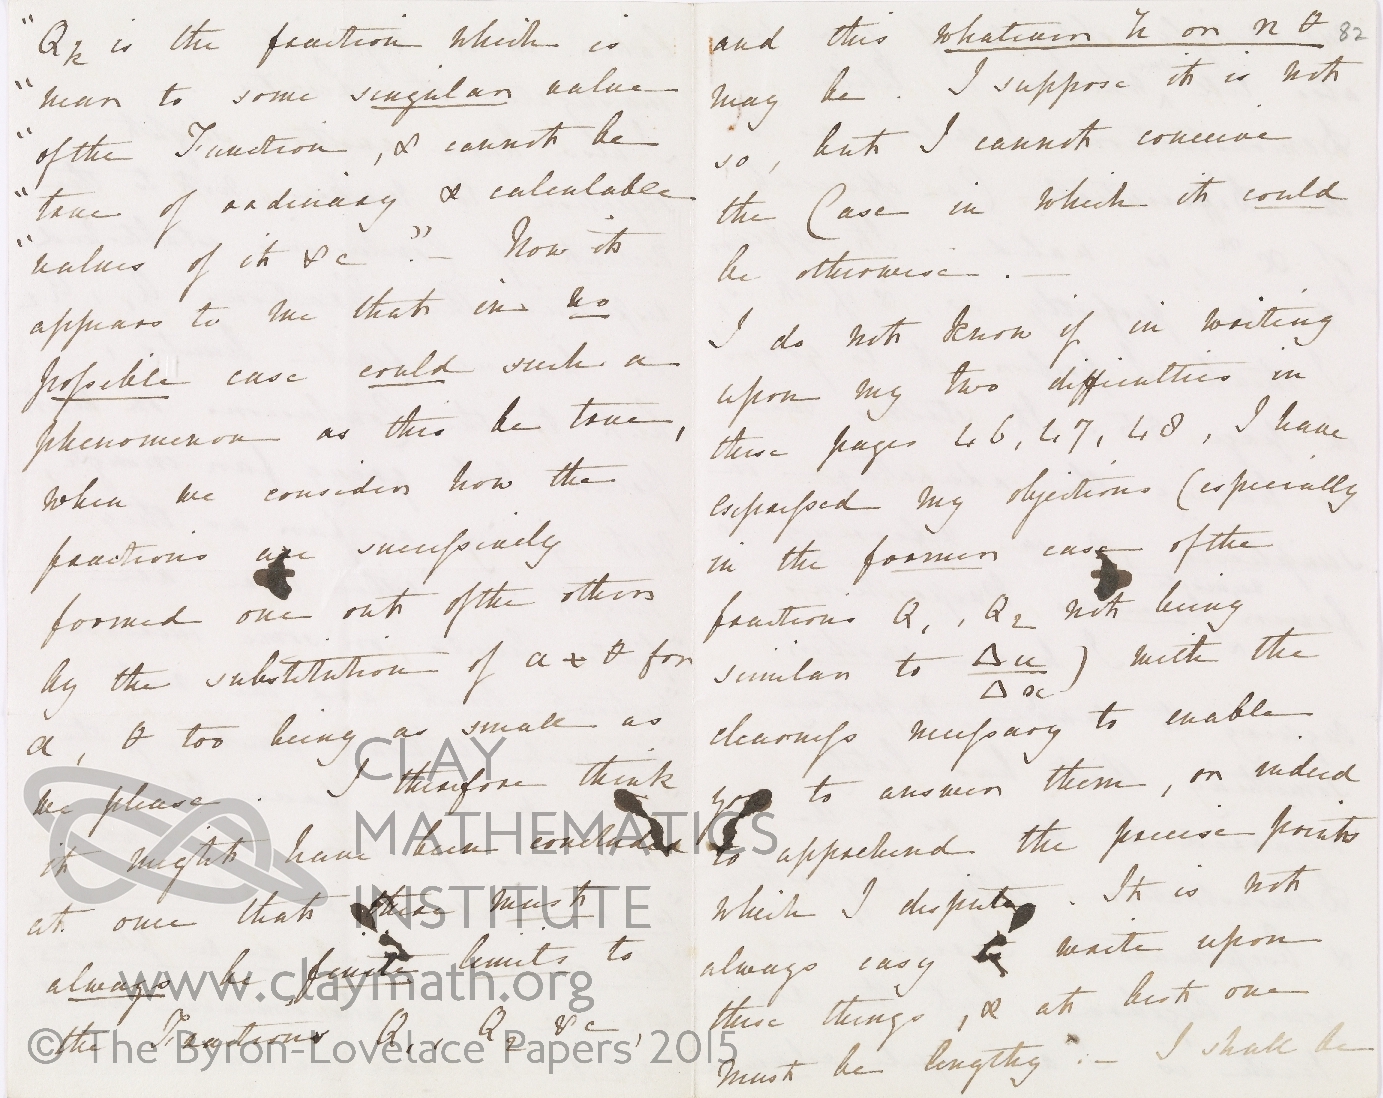 "Q k is the fraction which is
"near to some singular value
"of the Function, & cannot be
"true of ordinary & calculable
"values of it &c". — Now it
appears to me that in no
possible case could such a
phenomenon as this be true,
when we consider how the
fractions are successively
formed one out of the others
by the substitution of a + θ for
a, θ too being as small as
we please. I therefore think
it might have been concluded
at once that there must
always be finite limits to
the Fractions Q1, Q2 &c,
and this whatever h or n θ 82
may be. I suppose it is not
so, but I cannot conceive
the Case in which it could
be otherwise. —
I do not know if in writing
upon my two difficulties in
these pages 46, 47, 48, I have
expressed my objections (especially
in the former case of the
fractions Q1, Q2 not being
similar to Δu/Δx) with the
clearness necessary to enable
you to answer them, or indeed
to apprehend the precise points
which I dispute. It is not
always easy to write upon
these things, & at best one
must be lengthy. — I shall be
CLAY
MATHEMATICS
INSTITUTE
www.claymath.org
©The Byron-Lovelace Papers 2015